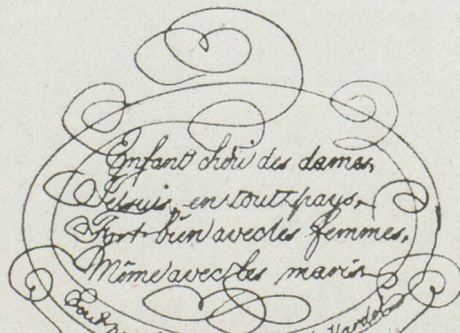 Enfant chéri des dames,
Je suis, en tout pays,
Fort bien avec les femmes,
Même avec les maris.